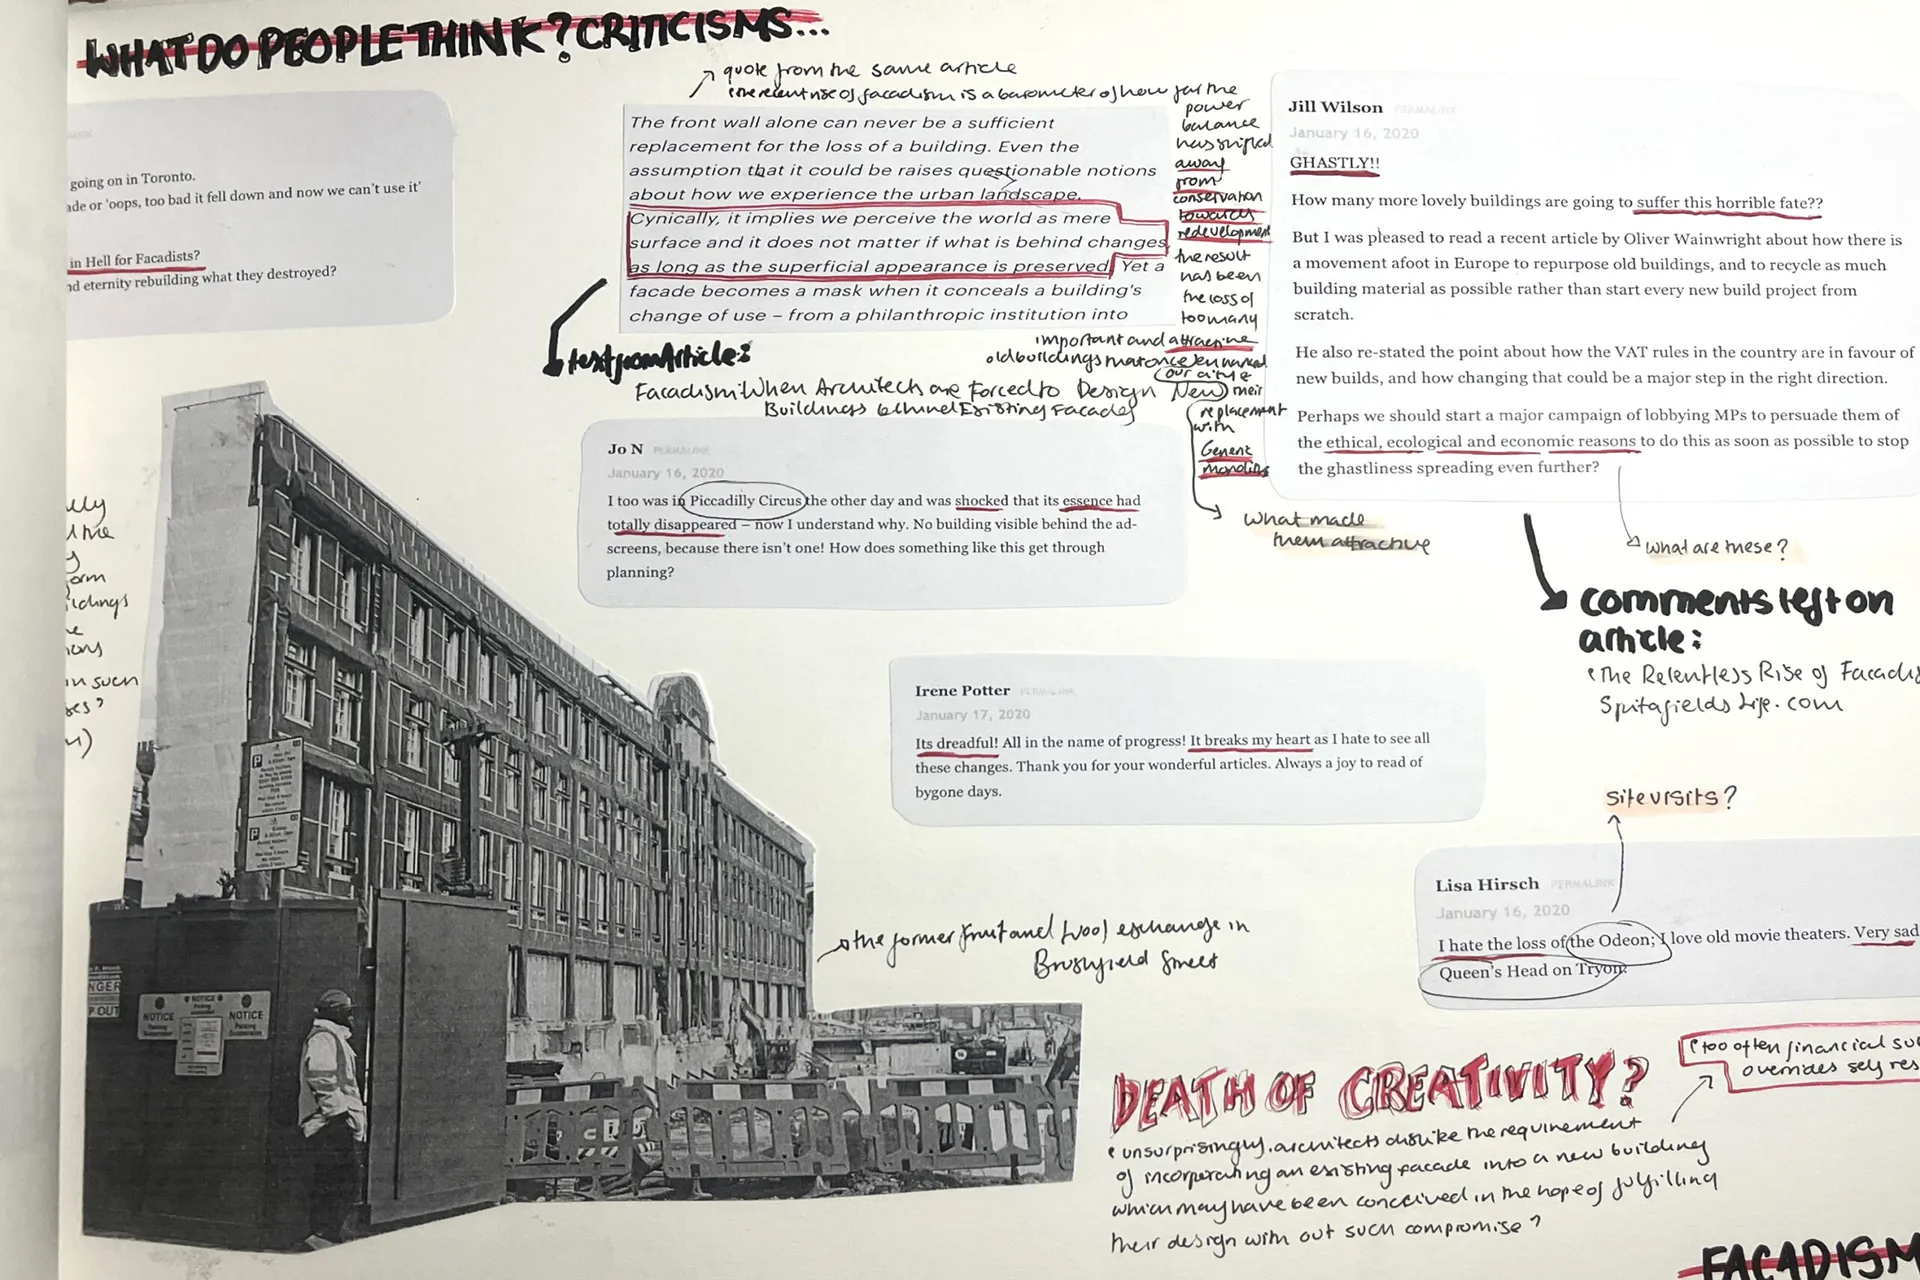 WHAT DO PEOPLE THINK? CRITICISMS...
going on in Toronto.
ade or 'oops, too bad it fell down and now we can't use it'
in Hell for Facadists?
nd eternity rebuilding what they destroyed?
quote from the same article
'the recent rise of facadism is a barometer of how far the
power
balance
has shifted
away
from
conservation
towards
redevelopment
the result
has been
the loss of
too many
important and attractive
old buildings that once enhanced
our city &
their
replacement
with
Generic
monoliths
what made
them attractive
The front wall alone can never be a sufficient
replacement for the loss of a building. Even the
assumption that it could be raises questionable notions
about how we experience the urban landscape.
Cynically, it implies we perceive the world as mere
surface and it does not matter if what is behind changes
as long as the superficial appearance is preserved. Yet a
facade becomes a mask when it conceals a building's
change of use – from a philanthropic institution into
text from Article:
Facadism: When Architech are Forced to Design New
Buildings behind Existing Facades
Jill Wilson PERMALINK
January 16, 2020
GHASTLY!!
How many more lovely buildings are going to suffer this horrible fate??
But I was pleased to read a recent article by Oliver Wainwright about how there is
a movement afoot in Europe to repurpose old buildings, and to recycle as much
building material as possible rather than start every new build project from
scratch.
He also re-stated the point about how the VAT rules in the country are in favour of
new builds, and how changing that could be a major step in the right direction.
Perhaps we should start a major campaign of lobbying MPs to persuade them of
the ethical, ecological and economic reasons to do this as soon as possible to stop
the ghastliness spreading even further?
what are these?
comments left on
article:
'The Relentless Rise of Facadis
Spitafields Life.com
Jo N PERMALINK
January 16, 2020
I too was in Piccadilly Circus the other day and was shocked that its essence had
totally disappeared – now I understand why. No building visible behind the ad-
screens, because there isn't one! How does something like this get through
planning?
Irene Potter PERMALINK
January 17, 2020
Its dreadful! All in the name of progress! It breaks my heart as I hate to see all
these changes. Thank you for your wonderful articles. Always a joy to read of
bygone days.
site visits?
Lisa Hirsch PERMALINK
January 16, 2020
I hate the loss of the Odeon; I love old movie theaters. Very sad
Queen's Head on Tryon.
the former fruit and wool exchange in
Brushfield Street
NGER
P OUT
NOTICE
NOTICE
NOTICE
DEATH OF CREATIVITY?
'unsurprisingly, architects dislike the requirement
of incorporating an existing facade into a new building
which may have been conceived in the hope of fulfilling
their design with out such compromise'
'too often financial su
overrides self res
FACADISM